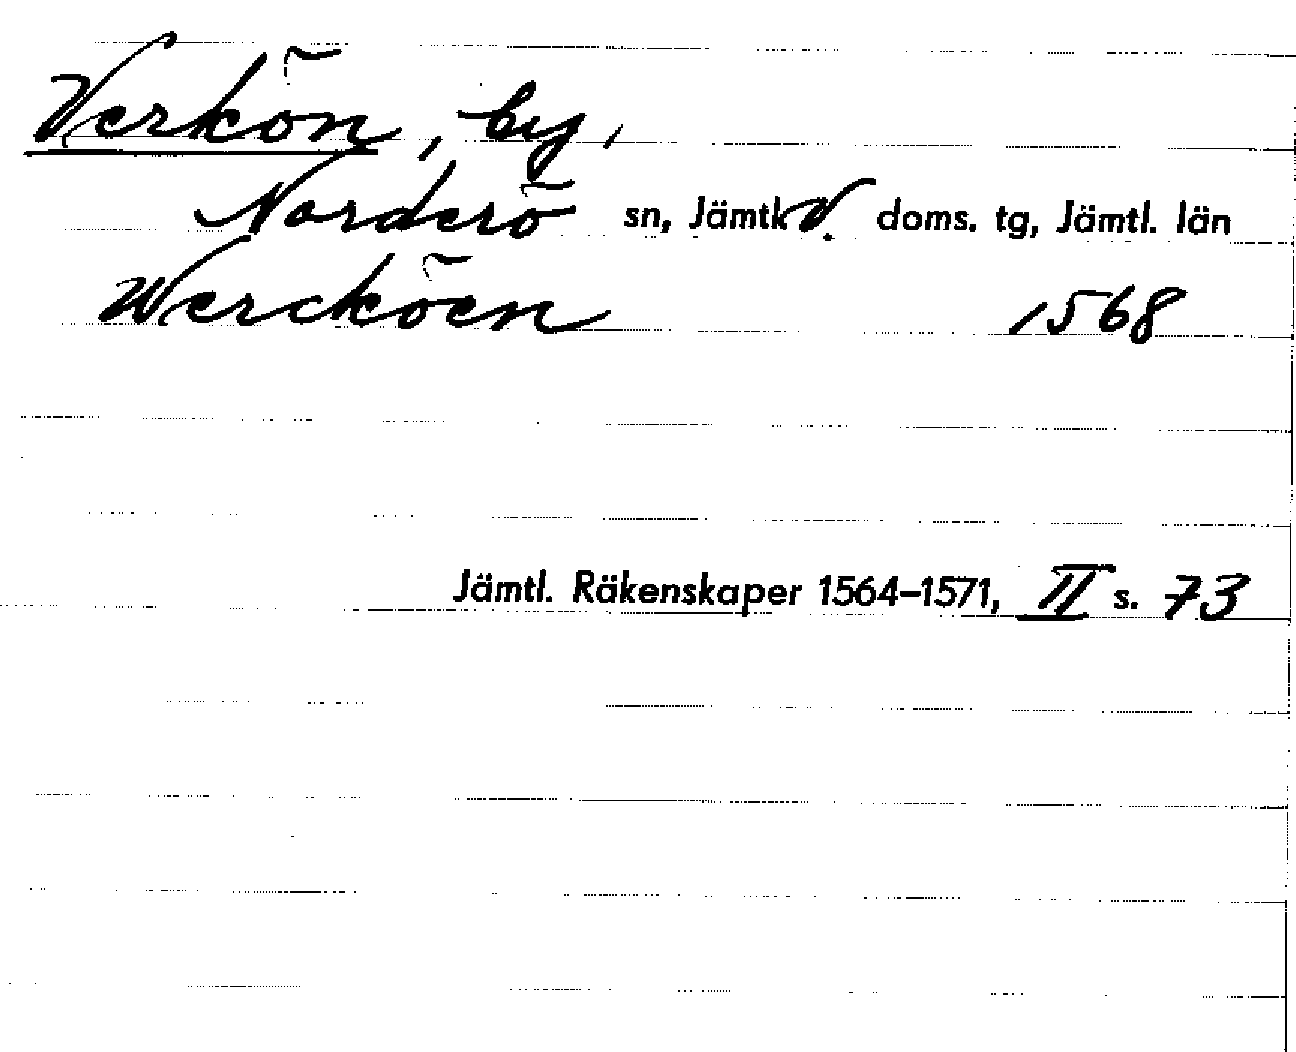 Verkön, by,
Norderö sn, Jämtl. V. doms. tg, Jämtl. län
Wercköen 1568
Jämtl. Räkenskaper 1564–1571, II s. 73